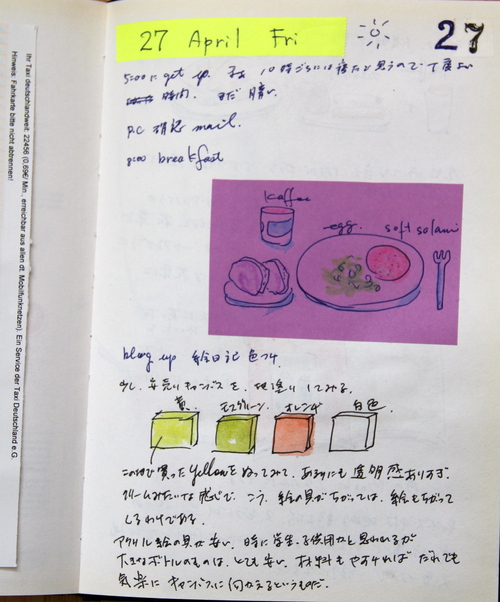 27 April Fri
27
5:00に get up. 10時ごろには寝たと思うので丁度よい
時間. まだ 暗い.
P.C 確認 mail.
8:00 breakfast
kaffee
egg. soft salami
blog up 絵日記 色つけ.
少し、安売りキャンバスを、地塗りしてみる.
黄. モスグリーン. オレンジ 白色.
この切び買ったyellowをぬってみて、あまりにも透明感ありすぎ.
クリームみたいな感じで、こう、絵の具がちがっては、絵もちがって
しまうわけである.
アクリル絵の具が安い、時に学生、子供用かと思われるが
大きなボトルのものは、とても安い、材料もやすければ だれでも
気楽に キャンバスに向かえるというものだ.
Ihr Taxi deutschlandweit: 22456 (0,69€/ Min., erreichbar aus allen dt. Mobilfunknetzen). Ein Service der Taxi Deutschland e.G.
Hinweis: Fahrkarte bitte nicht abtrennen!